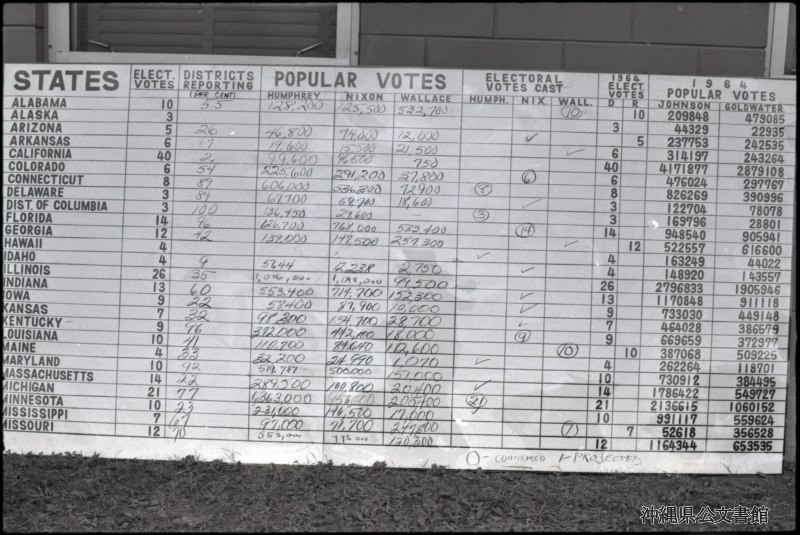 STATES ELECT. VOTES DISTRICTS REPORTING (PER CENT) POPULAR VOTES ELECTORAL VOTES CAST 1964 ELECT. VOTES 1964 POPULAR VOTES
HUMPHREY NIXON WALLACE HUMPH. NIX. WALL. D R JOHNSON GOLDWATER
ALABAMA 10 55 128,200 125,500 532,700 10 10 209848 479085
ALASKA 3 3 44329 22935
ARIZONA 5 20 46,800 74,000 12,000 ✓ 5 237753 242535
ARKANSAS 6 17 19,600 15,500 21,500 ✓ 6 314197 243264
CALIFORNIA 40 2 99,600 96600 750 40 4171877 2879108
COLORADO 6 54 225,600 291,200 37,800 6 6 476024 297767
CONNECTICUT 8 87 606,000 536,300 72,900 8 8 826269 390996
DELAWARE 3 84 67,700 69,700 18,600 ✓ 3 122704 78078
DIST. OF COLUMBIA 3 100 126,450 27,600 — 3 3 169796 28801
FLORIDA 14 96 626,700 768,000 533,400 14 14 948540 905941
GEORGIA 12 42 139,000 147,500 257,300 ✓ 12 522557 616600
HAWAII 4 ✓ 4 163249 44022
IDAHO 4 9 5644 7,238 2,750 ✓ 4 148920 143557
ILLINOIS 26 35 1,096,000 99,500 26 2796833 1905946
INDIANA 13 60 553,400 714,700 152,300 ✓ 13 1170848 911118
IOWA 9 22 58400 87,900 10,000 ✓ 9 733030 449148
KANSAS 7 32 98,300 154,700 28,700 ✓ 7 464028 386579
KENTUCKY 9 76 372,000 442,100 18,000 9 9 669659 372977
LOUISIANA 10 41 110,700 10 10 387068 509225
MAINE 4 33 32,200 24,990 1,070 ✓ 4 262264 118701
MARYLAND 10 92 519,787 500,000 157,000 10 730912 384495
MASSACHUSETTS 14 22 289,500 100,800 20,400 ✓ 14 1786422 549727
MICHIGAN 21 77 1,363,000 956600 205400 21 21 2136615 1060152
MINNESOTA 10 23 231,000 146,500 17,000 ✓ 10 991117 559624
MISSISSIPPI 7 67 97,000 71,700 247,800 7 7 52618 356528
MISSOURI 12 70 555,000 120,300 12 1164344 653535
O - CONFIRMED ✓ PROJECTED
沖縄県公文書館